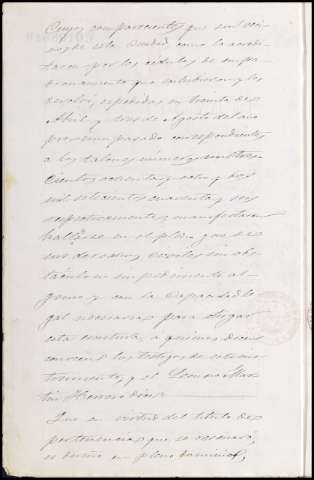 Cuyos comparecientes que son veci-
nos de esta Ciudad, como lo acredi-
taron por las cédulas de empa-
dronamiento que exhibieron y les
devolví, expedidas en treinta de
Abril y tres de Agosto del año
proximo pasado correspondientes
a los talones números cuatro-
cientos ochenta y ocho y dos
mil setecientos cuarenta y seis
respectivamente, manifestaron
hallarse en el pleno goce de
sus derechos civiles sin obs-
táculo ni impedimento al-
guno y con la capacidad le-
gal necesaria para otorgar
esta escritura, a quienes dicen
conocer los testigos de este otor-
gamiento, y el Mar-
tin Herrero dice:
Que en virtud del título de
pertenencia que se reseñará,
es dueño en pleno dominio,